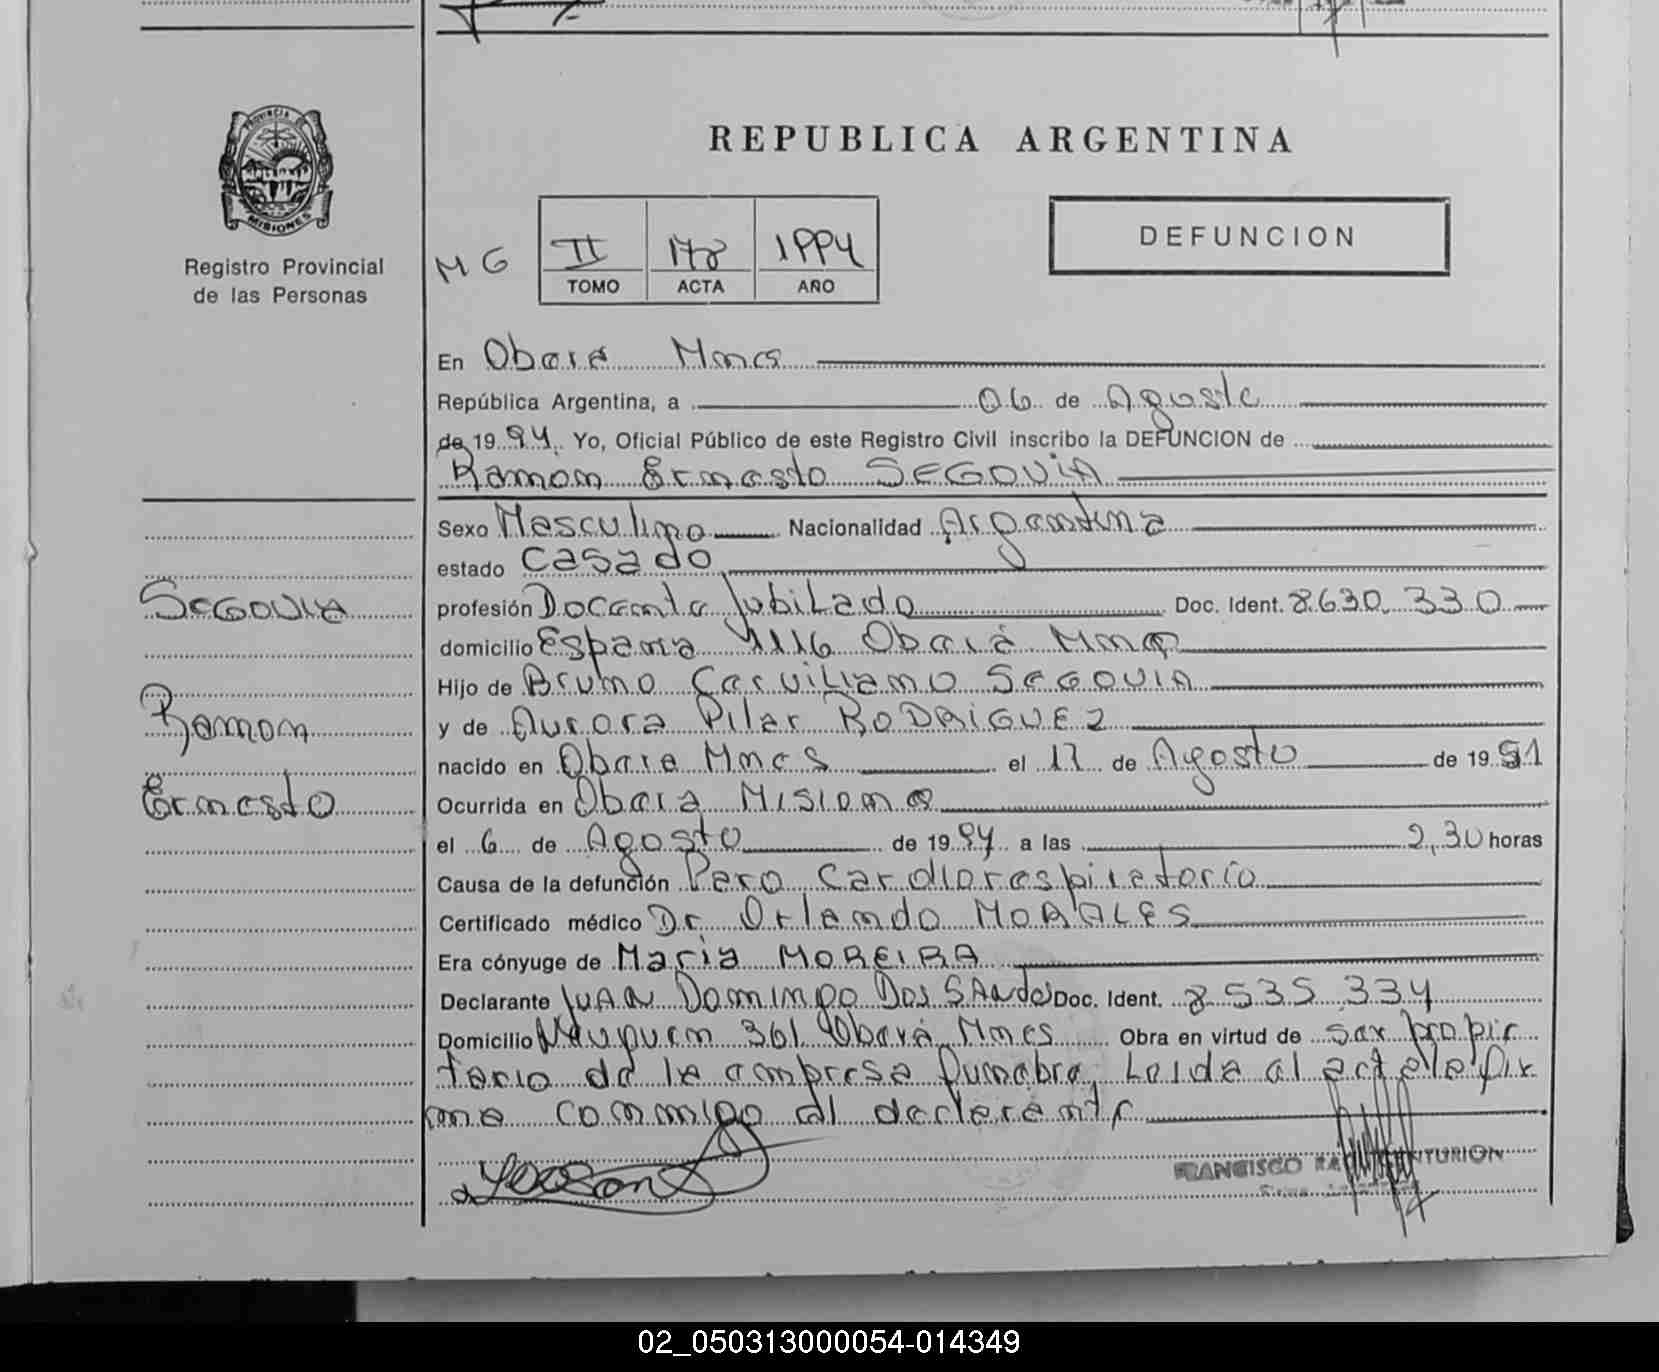 PROVINCIA DE
MISIONES
Registro Provincial
de las Personas
REPUBLICA ARGENTINA
MG
II 178 1994
TOMO ACTA AÑO
DEFUNCION
En Oberá Mnes
República Argentina, a 06 de Agosto
de 19 94 Yo, Oficial Público de este Registro Civil inscribo la DEFUNCION de
Ramón Ernesto SEGOVIA
Sexo Masculino Nacionalidad Argentina
estado Casado
profesión Docente Jubilado Doc. Ident. 8.630.330
domicilio España 1116 Oberá Mnes
Hijo de Bruno Cerviliano SEGOVIA
y de Aurora Pilar RODRIGUEZ
nacido en Obera Mnes el 17 de Agosto de 19 51
Ocurrida en Oberá Misiones
el 6 de Agosto de 19 94 a las 2,30 horas
Causa de la defunción Paro Cardiorespiratorio
Certificado médico Dr. Orlando MORALES
Era cónyuge de Maria MOREIRA
Declarante JUAN Domingo Dos SAntos Doc. Ident. 8535334
Domicilio Neuquen 361 Oberá Mnes Obra en virtud de ser propie
tario de la empresa funebre, Leida el acta la fir
ma conmigo el declarante
FRANCISCO RA NTURION
SEGOVIA
Ramon
Ernesto
02_050313000054-014349